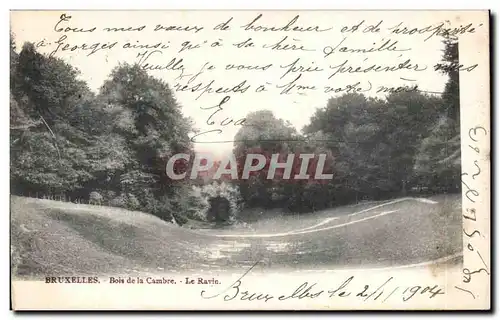 Tous mes vœux de bonheur et de prospérité
Georges ainsi qu'à sa chère famille
Veuillez, je vous prie, présenter mes
respects à Mme votre
Eva
CPAPHIL
BRUXELLES. - Bois de la Cambre. - Le Ravin.
Bruxelles le 2/1/1904